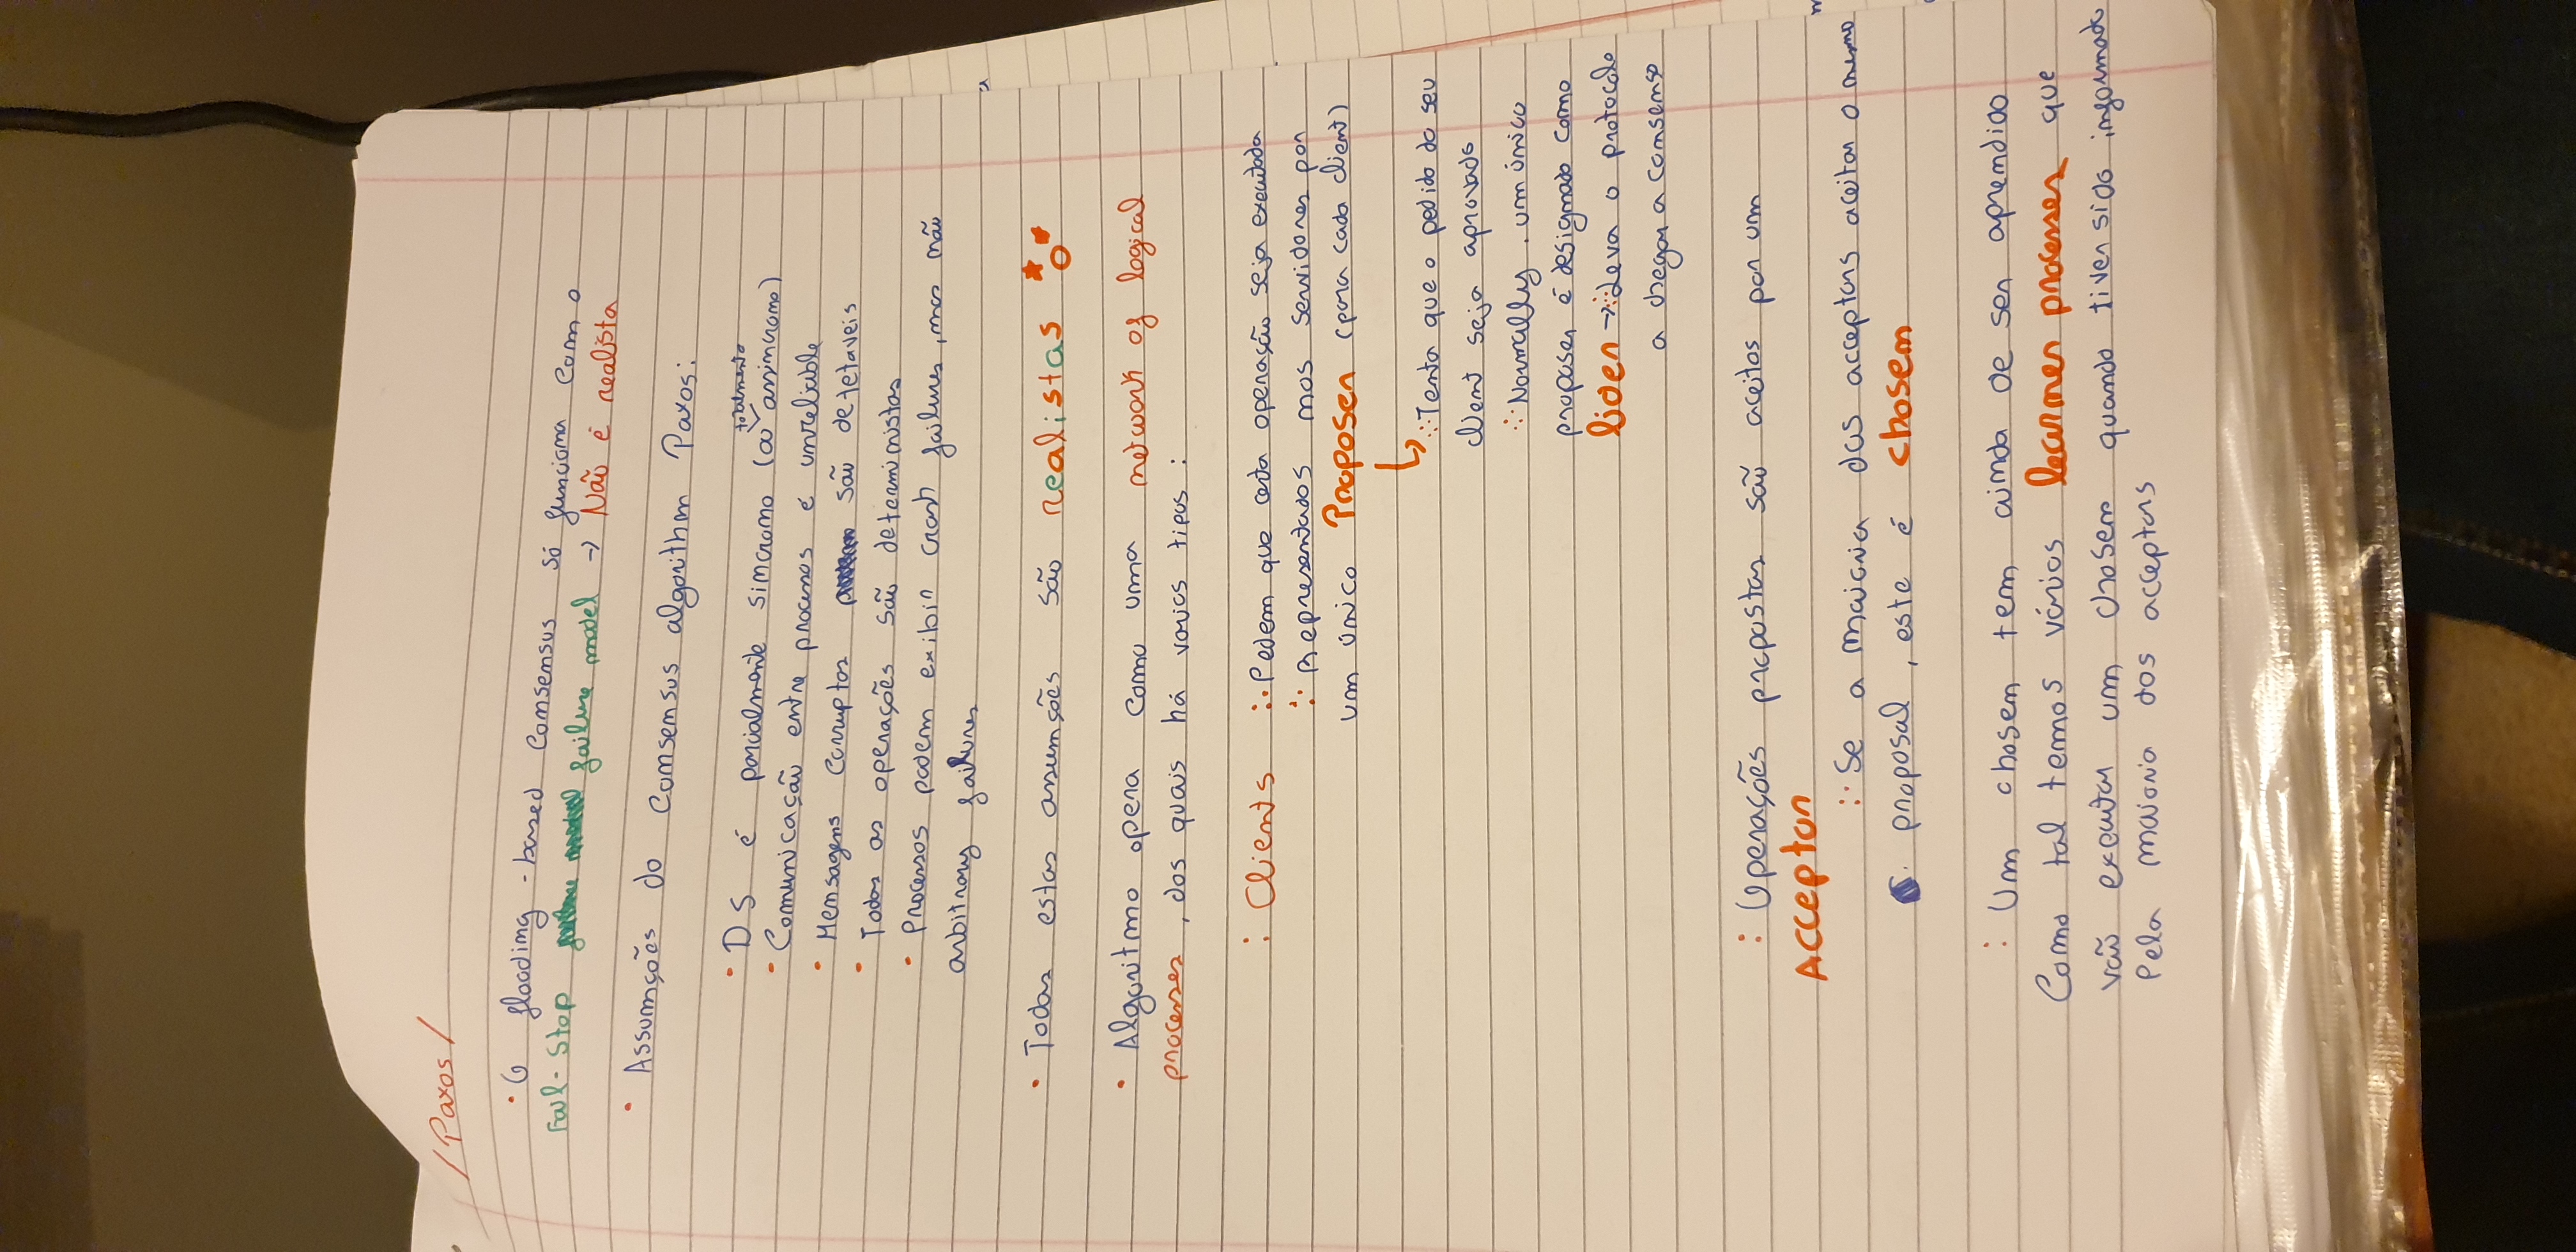 /Paxos/
• O flooding-based consensus só funciona com o
Fail-Stop failure model → Não é realista
• Assumções do consensus algorithm Paxos:
• DS é parcialmente síncrono (ou totalmente assíncrono)
• Comunicação entre processos é unreliable
• Mensagens corruptas são detetaveis
• Todas as operações são deterministas
• Processos podem exibir crash failures, mas não
arbitrary failures
• Todas estas assumções são realistas
• Algoritmo opera como uma network of logical
processes, dos quais há varios tipos:
: Clients ∴ Pedem que certa operação seja executada
∴ Representados nos servidores por
um único Proposer (para cada client)
↳ ∴ Tenta que o pedido do seu
client seja aprovado
∴ Normally, um único
proposer é designado como
lider → ∴ Leva o protocolo
a chegar a consenso
: Operações propostas são aceitas por um
Acceptor
∴ Se a maioria dos acceptors aceitar o mesmo
proposal, este é chosen
: Um chosen tem ainda de ser aprendido
Como tal temos vários learner processes que
vão executar um chosen quando tiver sido informado
Pela maioria dos acceptors